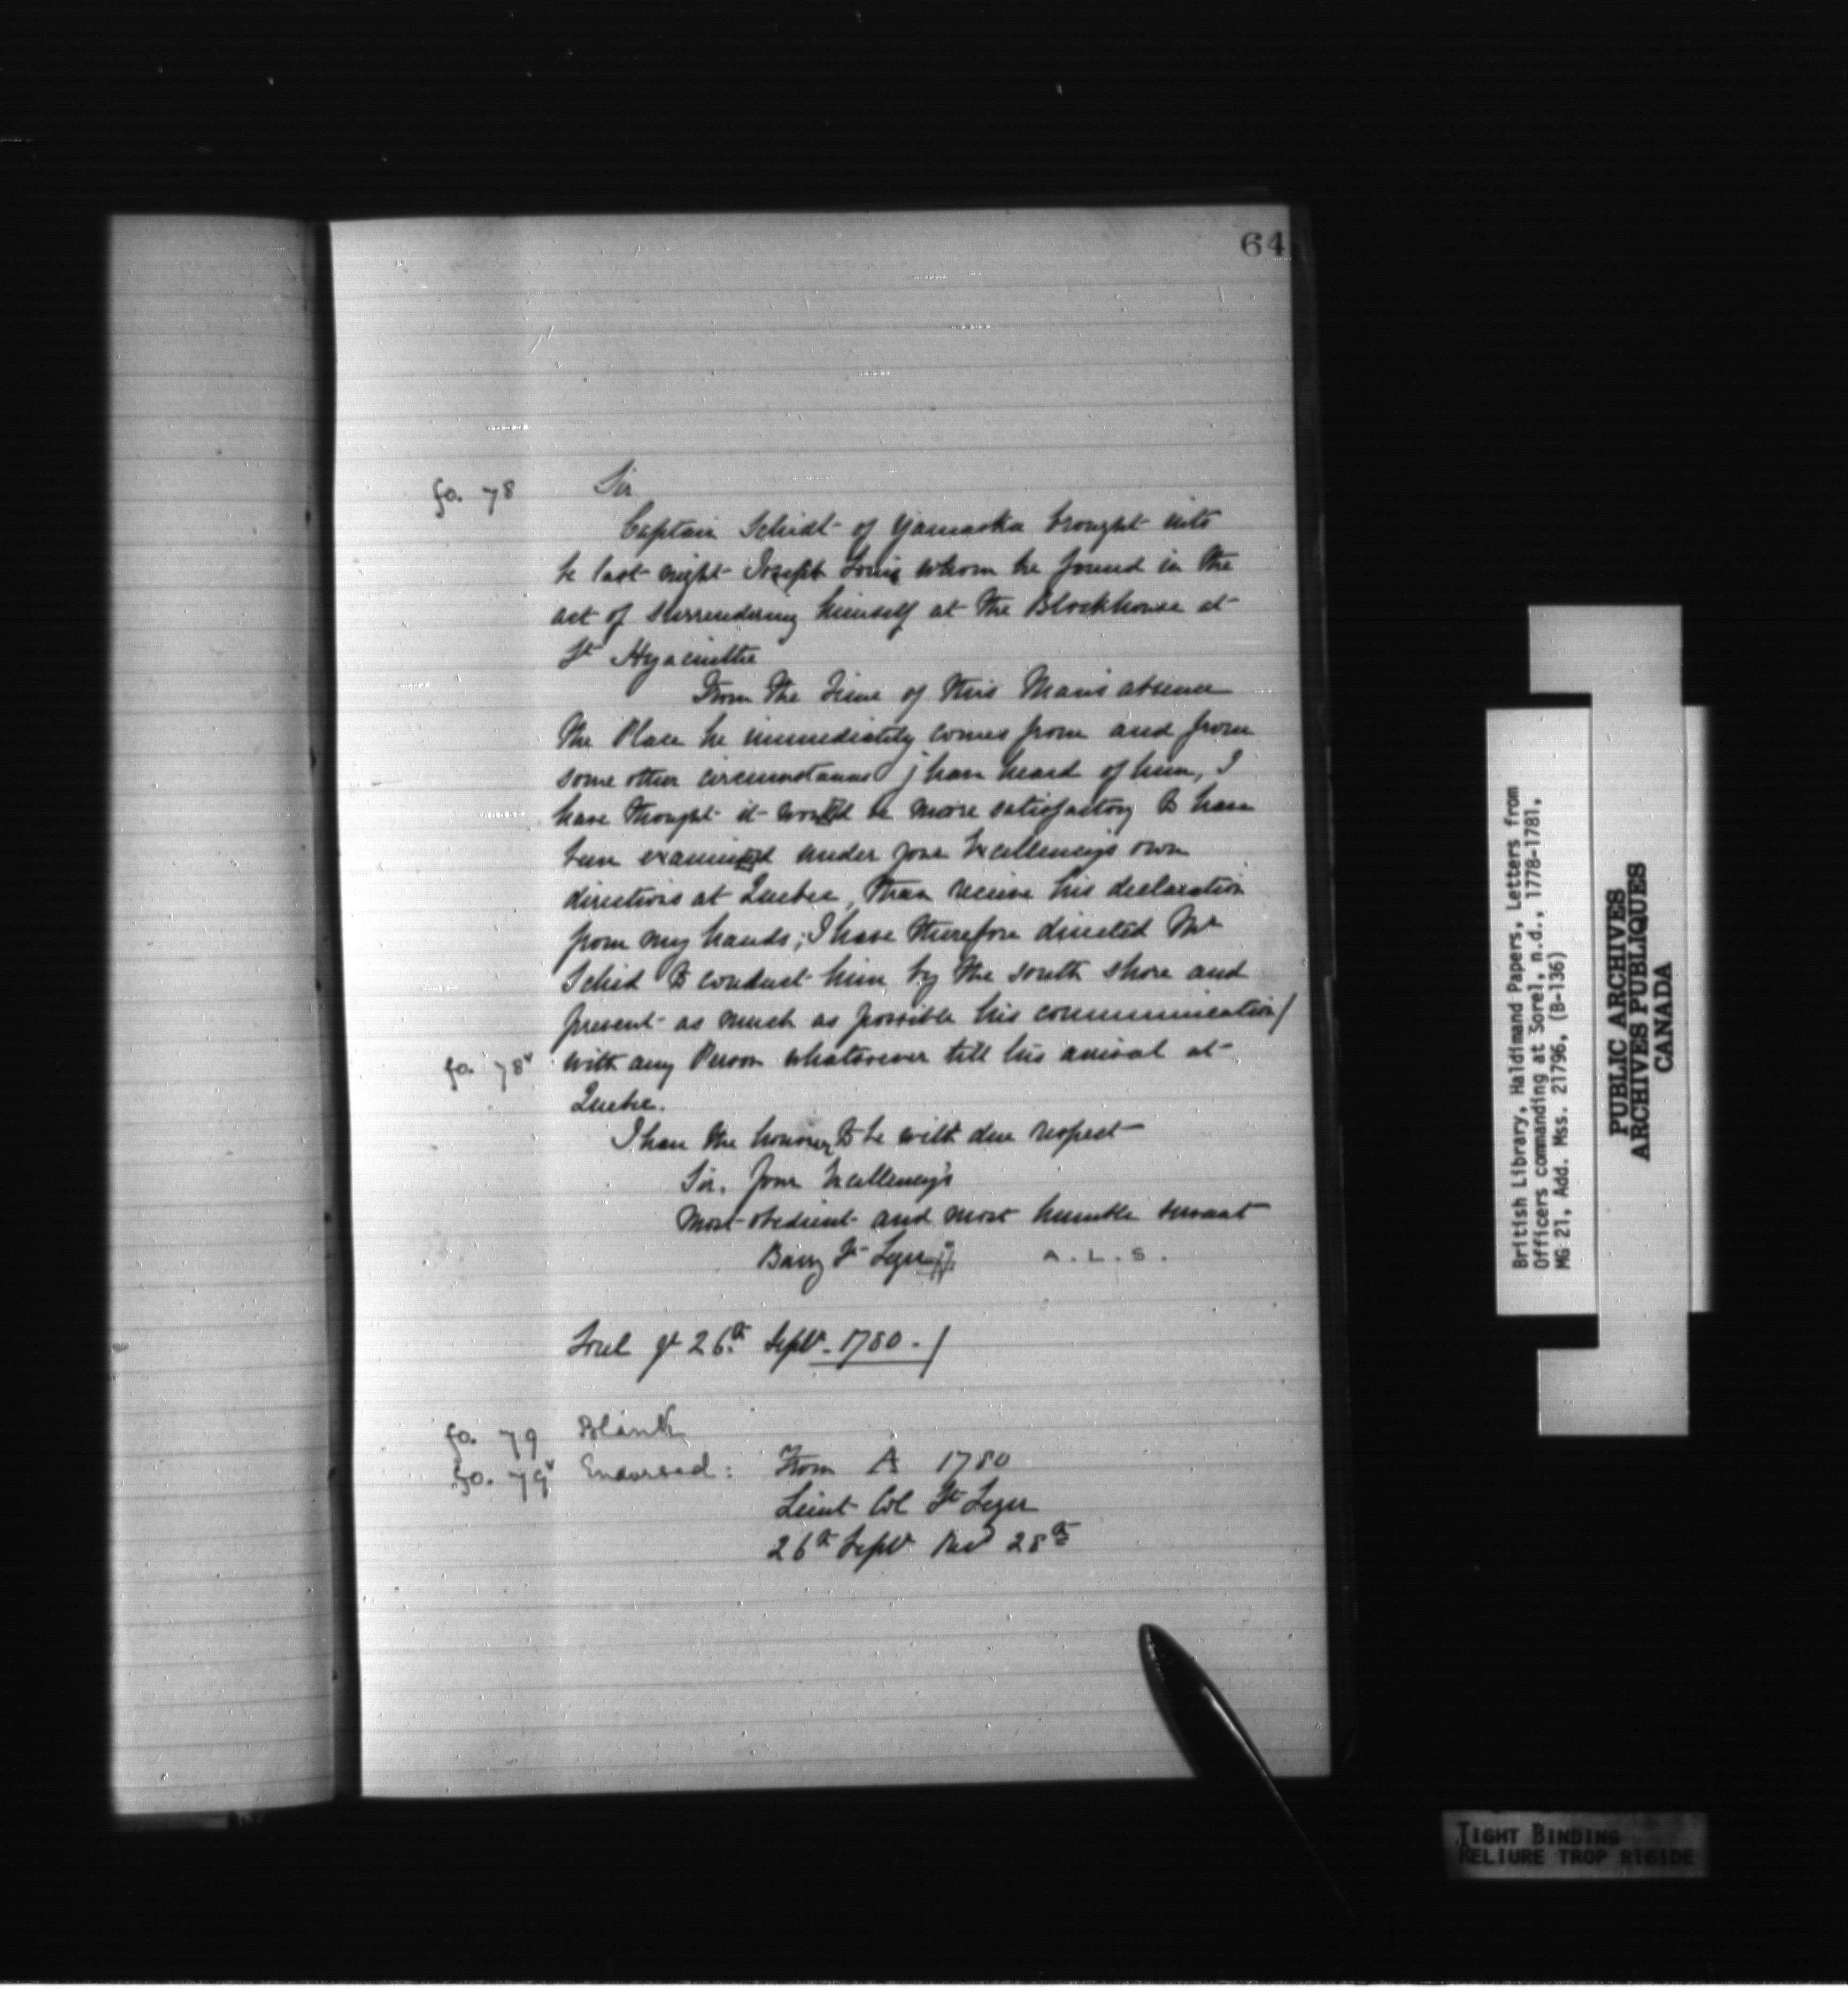 64
fo. 78 Sir
Captain Schidt of Yamaska brought into
be last night Joseph Louis whom he found in the
act of surrendering himself at the Blockhouse at
St Hyacinthe
From the Time of this Man's absence
the Place he immediately comes from and from
some other circumstances j have heard of him, I
have thought it would be more satisfactory to have
been examined under your Excellency's own
directions at Quebec, than receive his declaration
from my hands; I have therefore directed Mr
Schid to conduct him by the south shore and
prevent as much as possible his communication/
fo. 78v with any Person whatsoever till his arrival at
Quebec.
I have the honour to be with due respect
Sir, Your Excellency's
Most obedient and most humble servant
Barry St Leger A.L.S.
Sorel ye 26th Septr. 1780./
fo. 79 Blank
fo. 79v Endorsed: From A 1780
Lieut Col St Leger
26th Septr Recd 28th
British Library, Haldimand Papers, Letters from
Officers commanding at Sorel, n.d., 1778-1781,
MG 21, Add. Mss. 21796, (B-136)
PUBLIC ARCHIVES
ARCHIVES PUBLIQUES
CANADA
TIGHT BINDING
RELIURE TROP RIGIDE